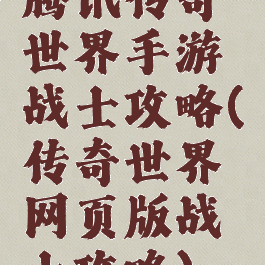 腾讯传奇
世界手游
战士攻略(
传奇世界
网页版战
士攻略)